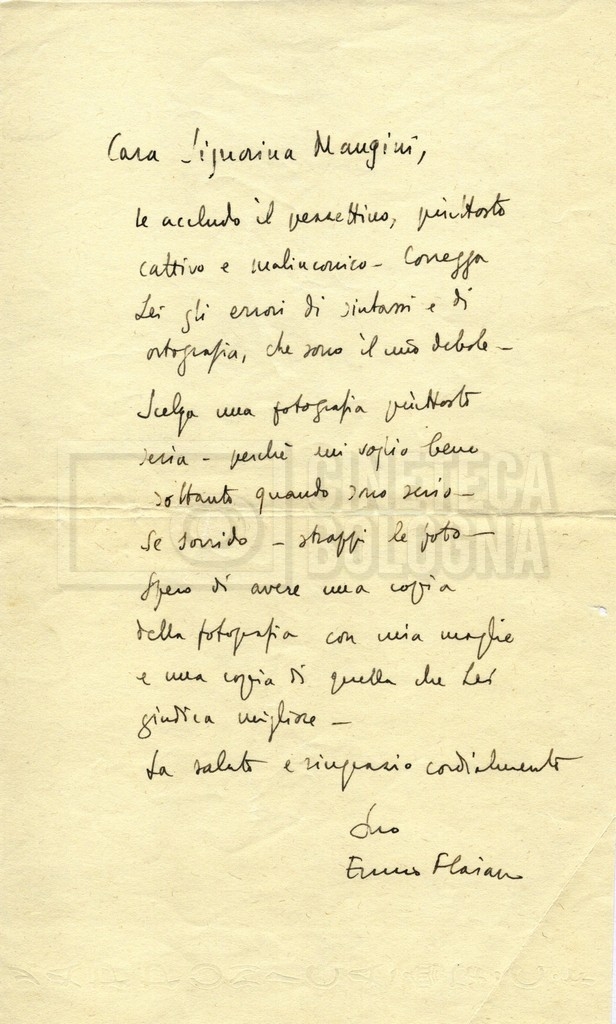 Cara Signorina Mangini,
le accludo il pezzettino, piuttosto
cattivo e malinconico - Corregga
Lei gli errori di sintassi e di
ortografia, che sono il mio debole -
Scelga una fotografia piuttosto
seria - perchè mi voglio bene
soltanto quando sono serio -
Se sorrido - strappi le foto -
Spero di avere una copia
della fotografia con mia moglie
e una copia di quella che Lei
giudica migliore -
La saluto e ringrazio cordialmente
Suo
Ennio Flaiano
CINETECA
BOLOGNA